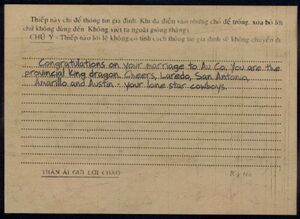 Thiếp này chỉ để thông tin gia đình. Khi đã điền vào những chỗ để trống, xóa bỏ lời
chữ không dùng đến. Không viết ra ngoài giòng thẳng)
CHÚ Ý - Thiếp nào lời lẽ không có tính cách thông tin gia đình sẽ không chuyển đi
Congratulations on your marriage to Au Co. You are the
provincial king dragon. Cheers, Laredo, San Antonio,
Amarillo and Austin - your lone star cowboys.
THÂN ÁI GỬI LỜI CHÀO